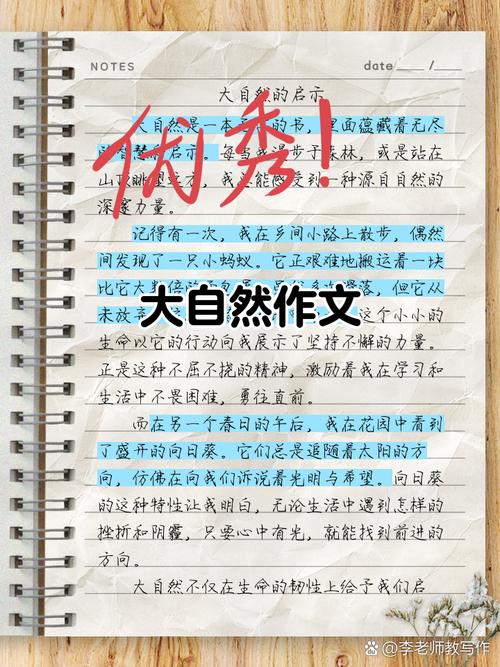 NOTES
date ___ / ___
大自然的启示
优秀!
大自然是一本 的书，里面蕴藏着无尽
的智慧 启示。每当我漫步于森林，或是站在
山顶眺望远方，我总能感受到一种源自自然的
深邃力量。
记得有一次，我在乡间小路上散步，偶然
间发现了一只小蚂蚁。它正艰难地搬运着一块
比它大数倍 落，但它从
大自然作文
未放弃 这个小小的
生命以它的行动向我展示了坚持不懈的力量。
正是这种不屈不挠的精神，激励着我在学习和
生活中不畏困难，勇往直前。
而在另一个春日的午后，我在花园中看到
了盛开的向日葵。它们总是追随着太阳的方
向，仿佛在向我们诉说着光明与希望。向日葵
的这种特性让我明白，无论生活中遇到怎样的
挫折和阴霾，只要心中有光，就能找到前进的
方向。
大自然不仅在生命的韧性上给予我们启
李老师教写作